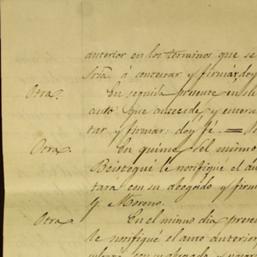 anterior en los terminos que se
á contestar y firmar, doy
Otra. En seguida presente en
auto que antecede y
tar y firmar, doy fé.
Otra. En quince del mismo
le notifiqué el au
tara con su abogado y firm
y Moreno.
Otra. En el mismo dia prese
le notifiqué el auto anterior,